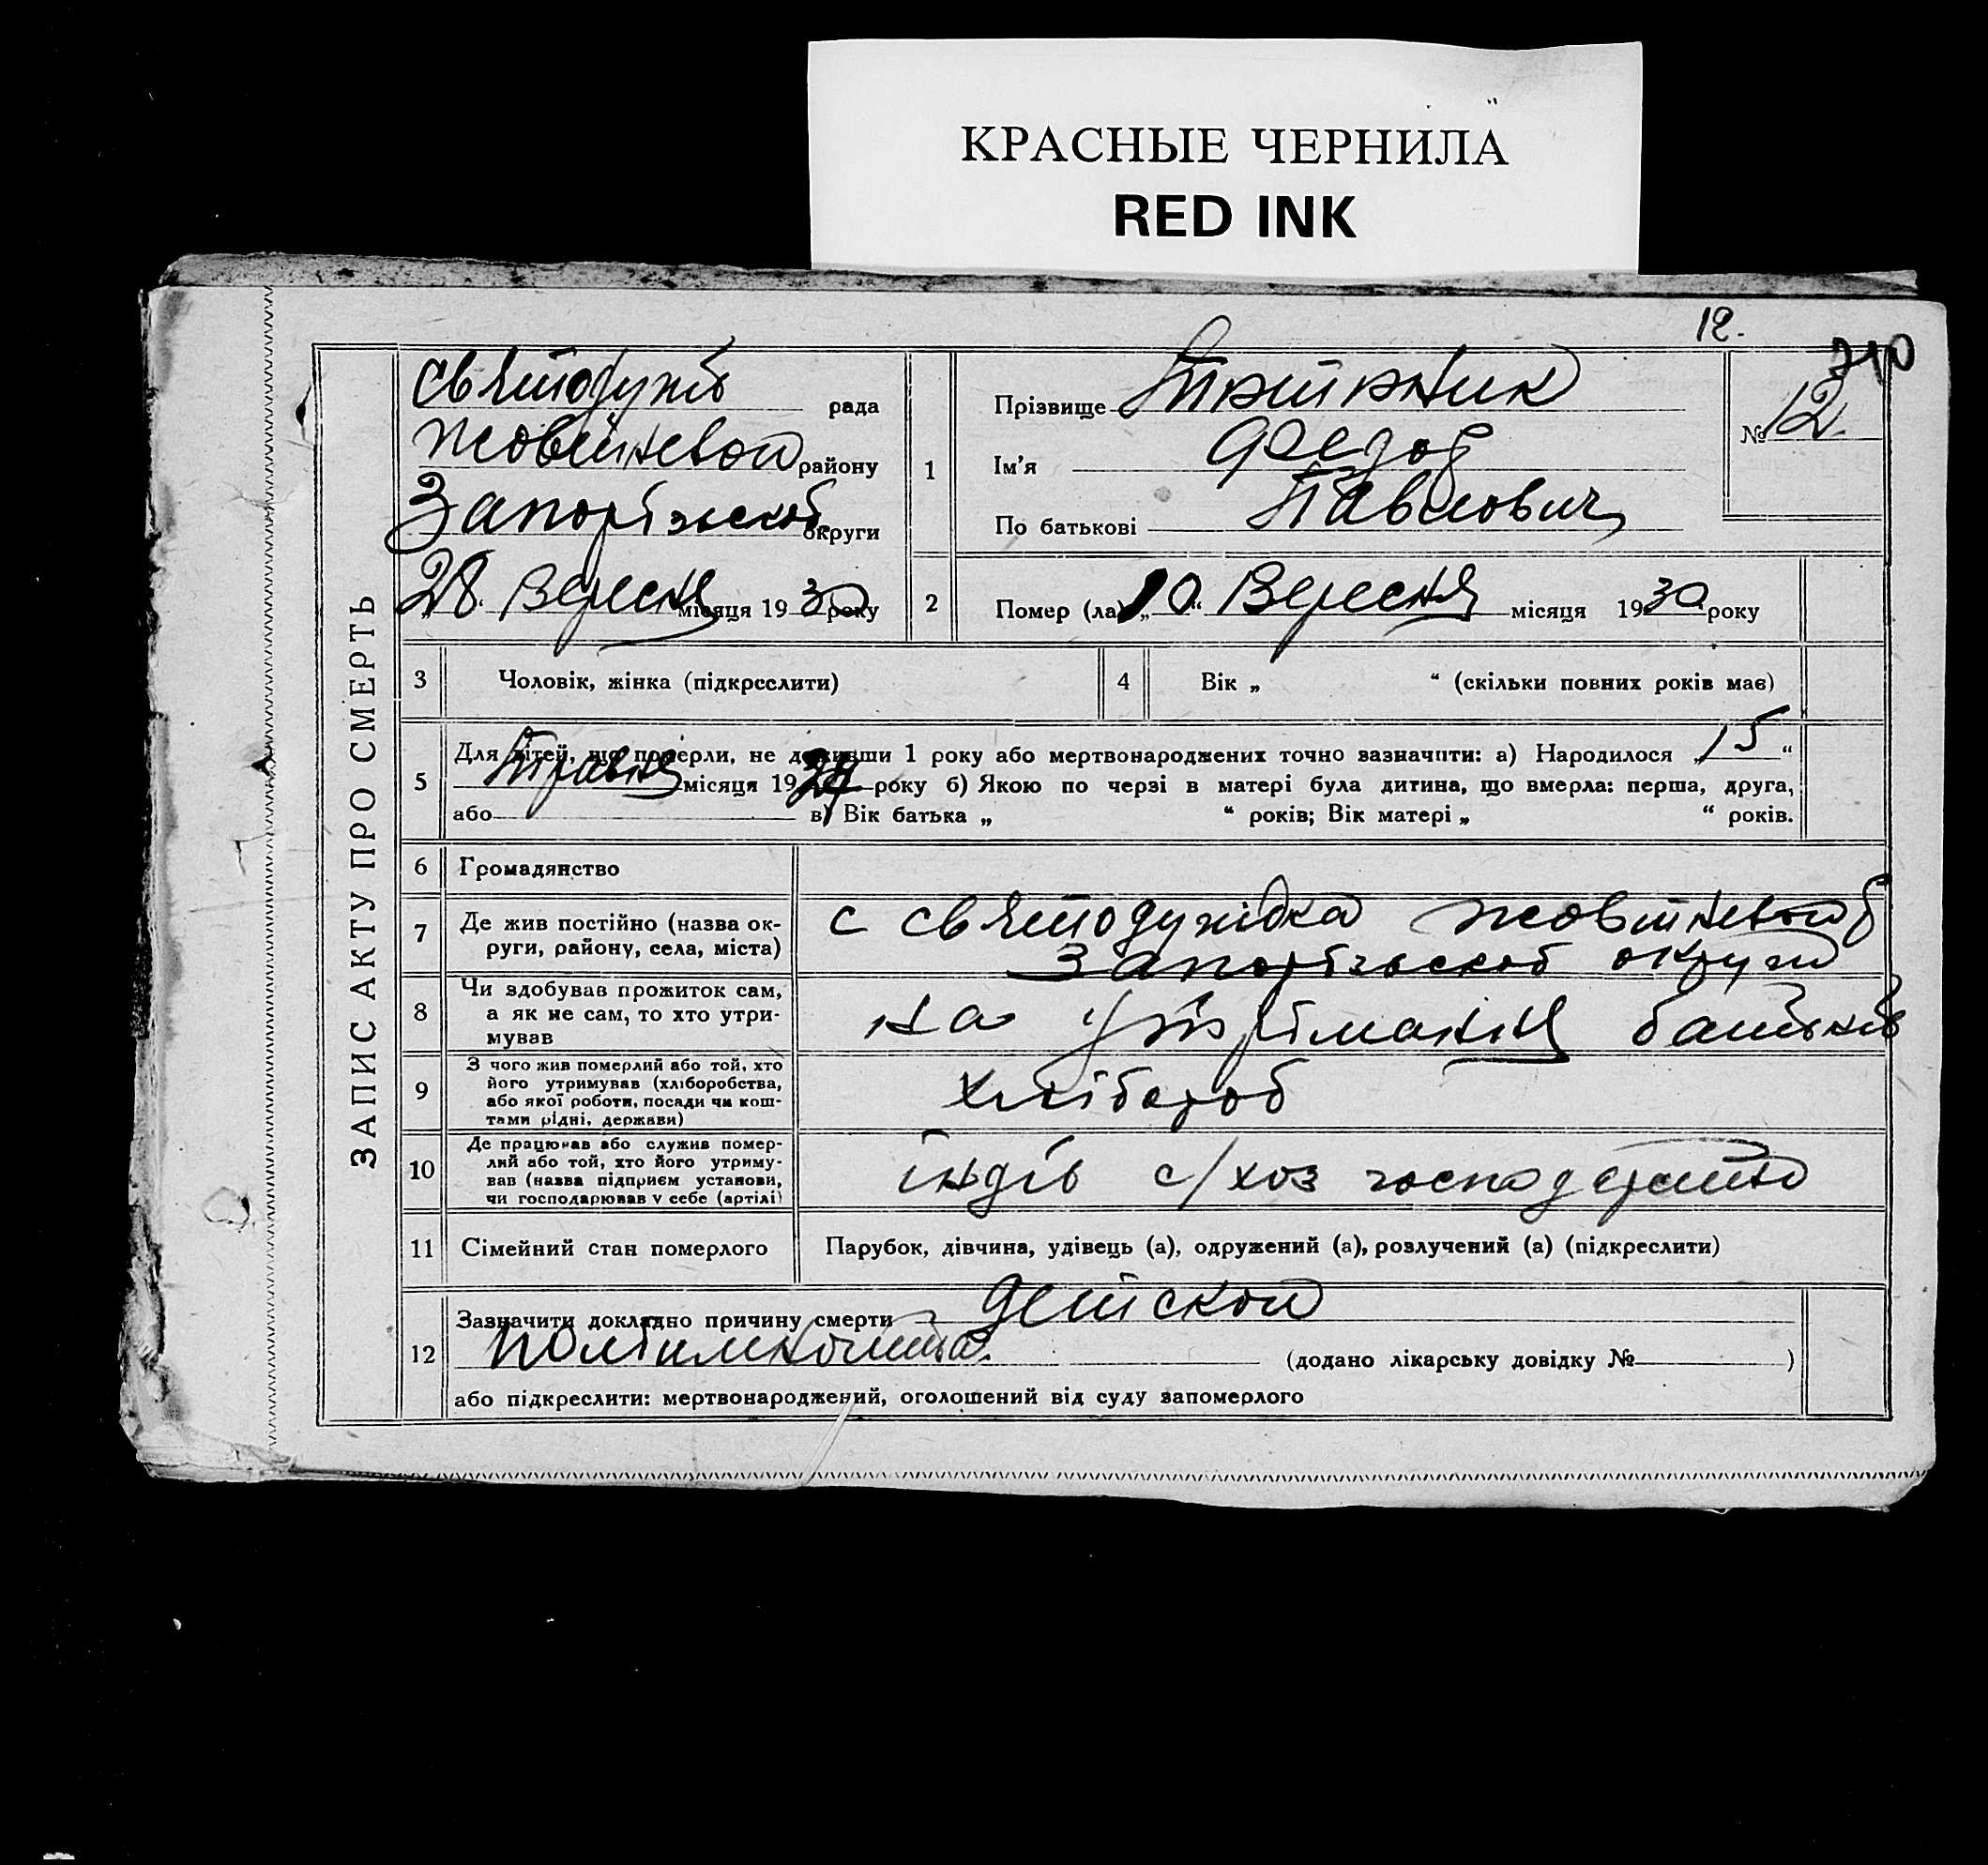 КРАСНЫЕ ЧЕРНИЛА
RED INK
12.
ЗАПИС АКТУ ПРО СМЕРТЬ
рада
Жовтневой району
Запорізької округи
28. Вересня місяця 1930 року
1
Прізвище
Ім'я Федор
По батькові Павлович
№ 12.
2
Помер (ла) „10“ Вересня місяця 1930 року
3
Чоловік, жінка (підкреслити)
4
Вік „ “ (скільки повних років має)
5
Для дітей, що померли, не доживши 1 року або мертвонароджених точно зазначити: а) Народилося „15“
Травня місяця 19 року б) Якою по черзі в матері була дитина, що вмерла: перша, друга,
або в) Вік батька „ “ років; Вік матері „ “ років.
6
Громадянство
7
Де жив постійно (назва ок-
руги, району, села, міста)
с Святодухівка Жовтневой
Запорізької округи
8
Чи здобував прожиток сам,
а як не сам, то хто утри-
мував
на утрімання батьків
9
З чого жив померлий або той, хто
його утримував (хліборобства,
або якої роботи, посади чи кош-
тами рідні, держави)
хлібороб
10
Де працював або служив помер-
лий або той, хто його утриму-
вав (назва підприєм установи,
чи господарював у себе (артілі)
індів с/хоз
11
Сімейний стан померлого
Парубок, дівчина, удівець (а), одружений (а), розлучений (а) (підкреслити)
12
Зазначити докладно причину смерти детской
(додано лікарську довідку № )
або підкреслити: мертвонароджений, оголошений від суду запомерлого